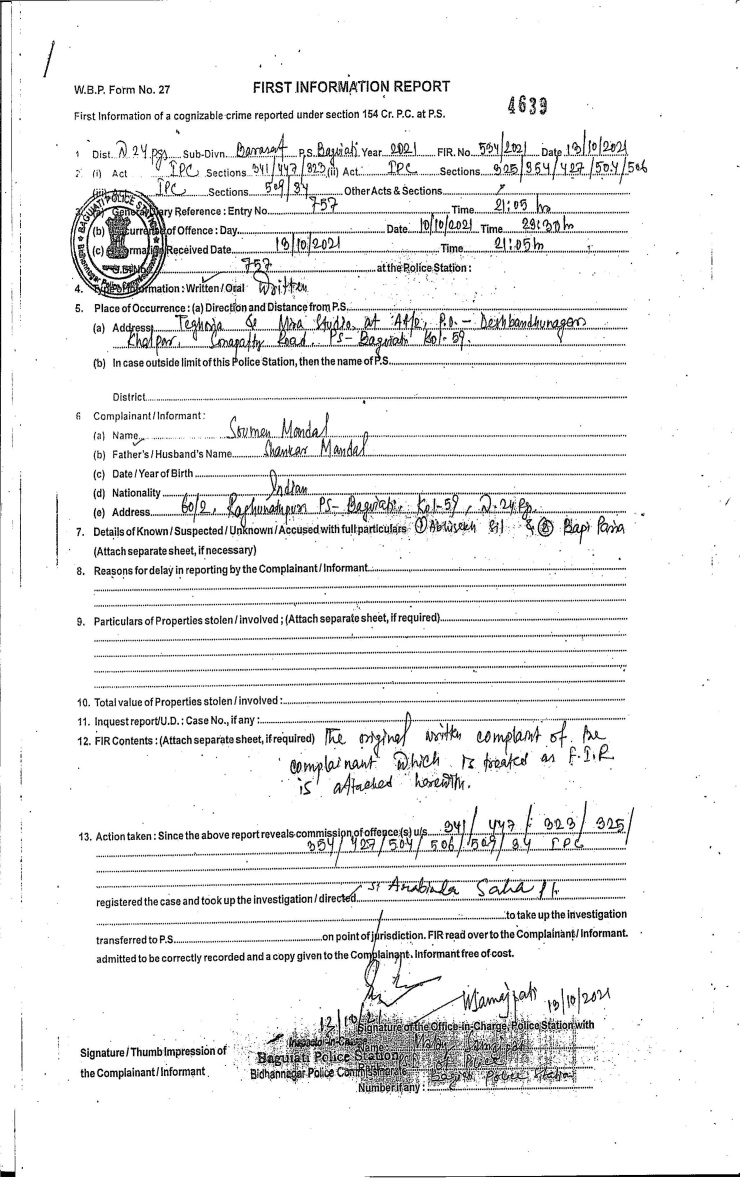 W.B.P. Form No. 27
FIRST INFORMATION REPORT
4639
First Information of a cognizable crime reported under section 154 Cr. P.C. at P.S.
1 Dist. N 24 pgs Sub-Divn. Barasat P.S. Baguiati Year 2021 FIR. No. 534/2021 Date 13/10/2021
2 (i) Act IPC Sections 341/447/323 (ii) Act IPC Sections 325/354/427/504/506
(iii) Act IPC Sections 509/34 Other Acts & Sections
3. (a) General Diary Reference : Entry No. 757 Time 21:05 hr
(b) Occurrence of Offence : Day Date 10/10/2021 Time 23:30 h
(c) Information Received Date 13/10/2021 Time 21:05 h
757 at the Police Station :
4. Type of Information : Written / Oral Written
5. Place of Occurrence : (a) Direction and Distance from P.S.
(a) Address Teghoria Mira Studio at P.O. - Deshbandhunagar
Road, PS- Baguiati Kol-59.
(b) In case outside limit of this Police Station, then the name of P.S.
District
6 Complainant / Informant :
(a) Name Soumen Mondal
(b) Father's / Husband's Name Shankar Mandal
(c) Date / Year of Birth
(d) Nationality Indian
(e) Address 60/2, Raghunathpur PS- Baguiati, Kol-59, N. 24 Pg.
7. Details of Known / Suspected / Unknown / Accused with full particulars ① Abhisekh & ② Bapi
(Attach separate sheet, if necessary)
8. Reasons for delay in reporting by the Complainant / Informant
9. Particulars of Properties stolen / involved ; (Attach separate sheet, if required)
10. Total value of Properties stolen / involved :
11. Inquest report/U.D. : Case No., if any :
12. FIR Contents : (Attach separate sheet, if required) The original written complaint of the
complainant which is treated as F.I.R
is attached herewith.
13. Action taken : Since the above report reveals commission of offence(s) u/s 341 / 447 / 323 / 325 /
354 / 427 / 504 / 506 / 509 / 34 IPC
registered the case and took up the investigation / directed SI Saha
to take up the investigation
transferred to P.S. on point of jurisdiction. FIR read over to the Complainant / Informant.
admitted to be correctly recorded and a copy given to the Complainant. Informant free of cost.
13/10/21
13/10/2021
Signature of the Office-in-Charge, Police Station with
Inspector-in-Charge Name
Signature / Thumb Impression of Baguiati Police Station
the Complainant / Informant Bidhannagar Police Commissionerate Police Station
Number if any :